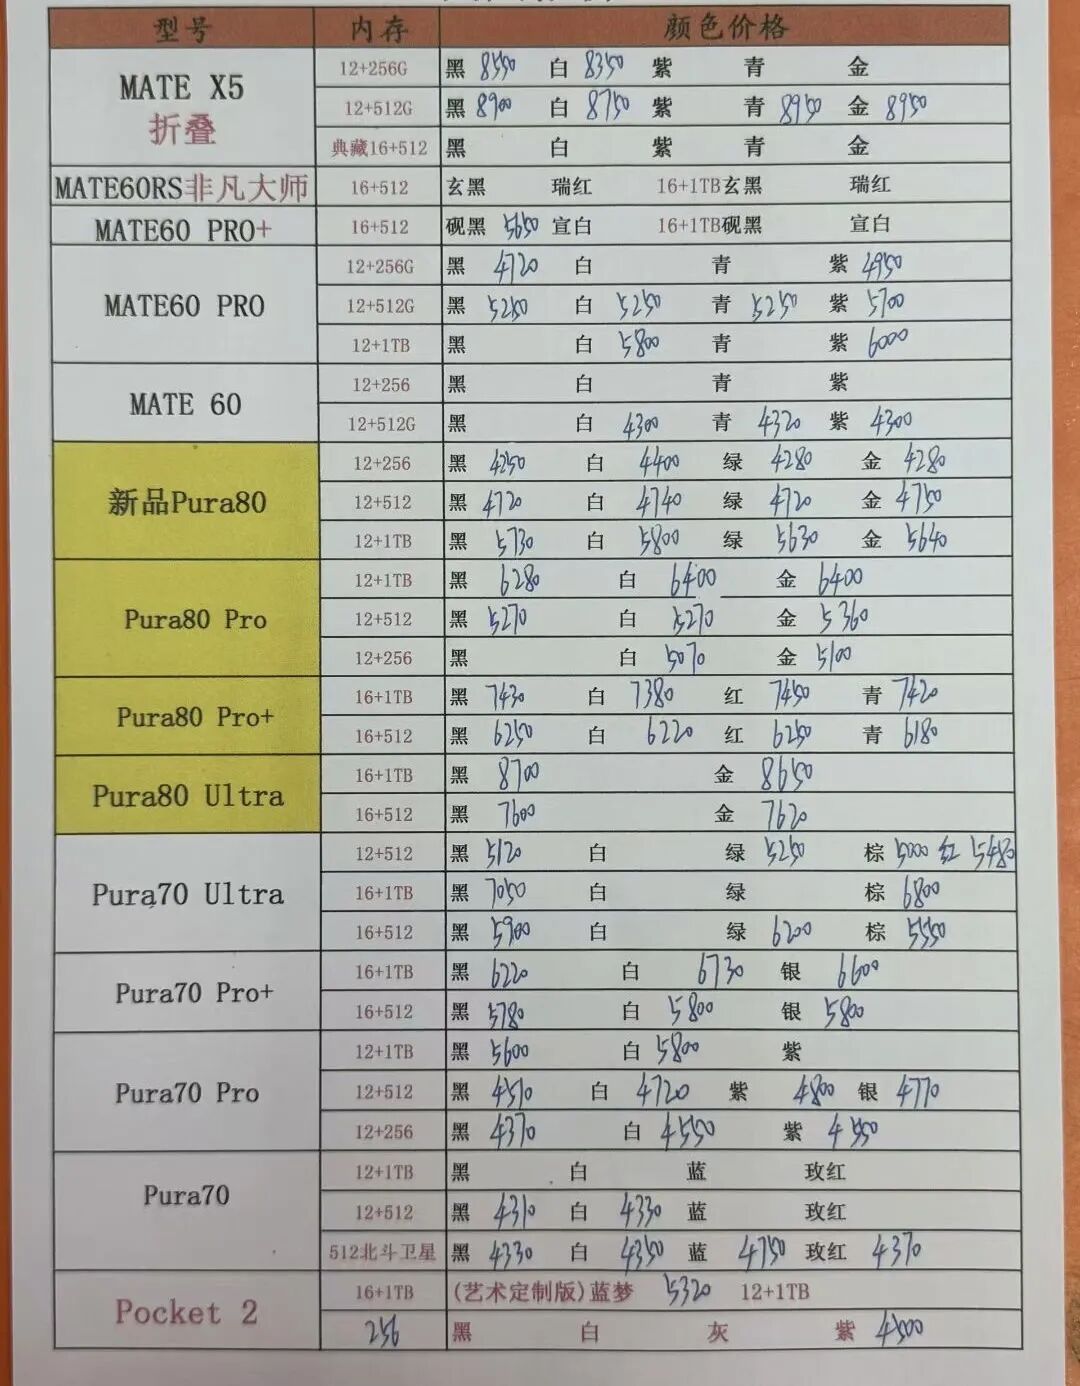 型号 内存 颜色价格
MATE X5 折叠
12+256G 黑 8550 白 8350 紫 青 金
12+512G 黑 8900 白 8750 紫 青 8950 金 8950
典藏16+512 黑 白 紫 青 金
MATE60RS非凡大师 16+512 玄黑 瑞红 16+1TB玄黑 瑞红
MATE60 PRO+ 16+512 砚黑 5650 宣白 16+1TB砚黑 宣白
MATE60 PRO
12+256G 黑 4720 白 青 紫 4950
12+512G 黑 5250 白 5250 青 5250 紫 5700
12+1TB 黑 白 5800 青 紫 6000
MATE 60
12+256 黑 白 青 紫
12+512G 黑 白 4300 青 4320 紫 4300
新品Pura80
12+256 黑 4250 白 4400 绿 4280 金 4280
12+512 黑 4720 白 4740 绿 4720 金 4750
12+1TB 黑 5730 白 5800 绿 5630 金 5640
Pura80 Pro
12+1TB 黑 6280 白 6400 金 6400
12+512 黑 5270 白 5270 金 5360
12+256 黑 白 5070 金 5100
Pura80 Pro+
16+1TB 黑 7430 白 7380 红 7450 青 7420
16+512 黑 6250 白 6220 红 6250 青 6180
Pura80 Ultra
16+1TB 黑 8700 金 8650
16+512 黑 7600 金 7620
Pura70 Ultra
12+512 黑 5120 白 绿 5250 棕 5000 红 5480
16+1TB 黑 7050 白 绿 棕 6800
16+512 黑 5900 白 绿 6200 棕 5550
Pura70 Pro+
16+1TB 黑 6220 白 6730 银 6600
16+512 黑 5780 白 5800 银 5800
Pura70 Pro
12+1TB 黑 5600 白 5800 紫
12+512 黑 4510 白 4720 紫 4800 银 4770
12+256 黑 4370 白 4550 紫 4550
Pura70
12+1TB 黑 白 蓝 玫红
12+512 黑 4310 白 4330 蓝 玫红
512北斗卫星 黑 4330 白 4350 蓝 4750 玫红 4370
Pocket 2
16+1TB (艺术定制版)蓝梦 5320 12+1TB
256 黑 白 灰 紫 4500